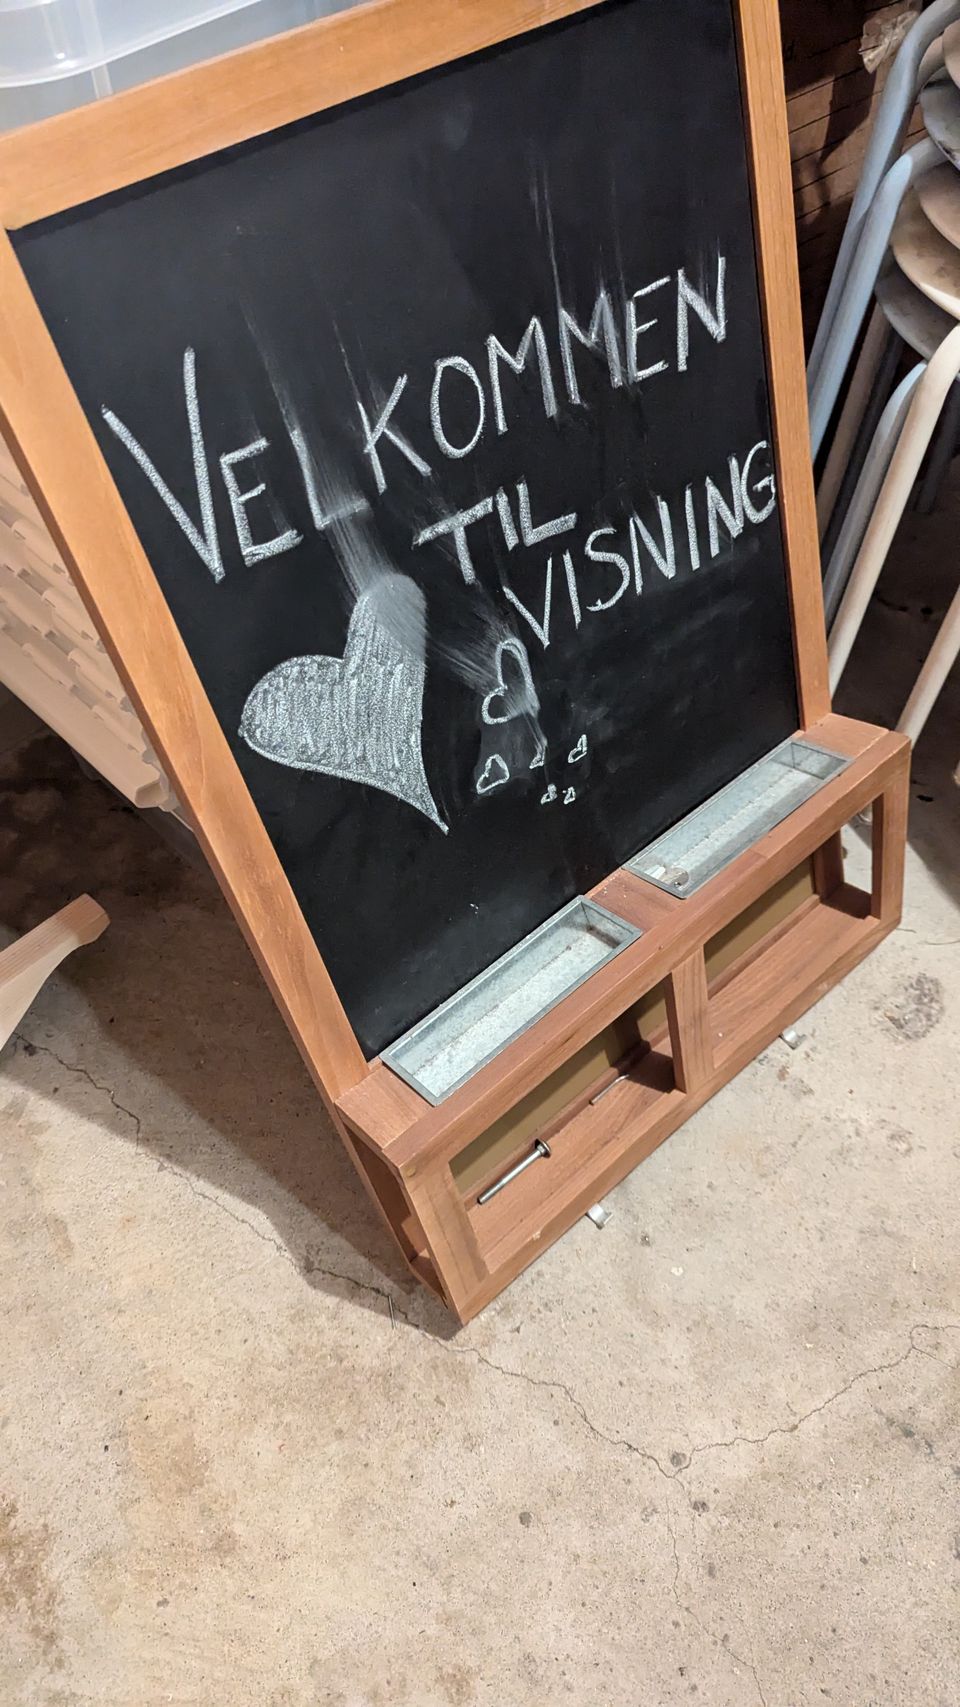 VELKOMMEN
TIL
VISNING